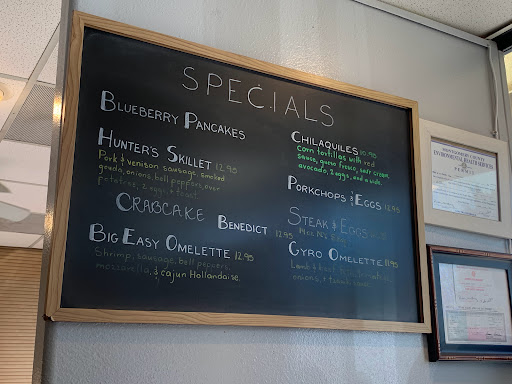 SPECIALS
BLUEBERRY PANCAKES
HUNTER'S SKILLET 12.95
Pork & venison sausage, smoked
gouda, onions, bell peppers, over
potatoes, 2 eggs & toast.
CRABCAKE
BENEDICT 12.95
BIG EASY OMELETTE 12.95
Shrimp, sausage, bell peppers,
mozzarella, & cajun Hollandaise.
CHILAQUILES 10.95
corn tortillas with red
sauce, queso fresco, sour cream,
avocado, 2 eggs, and a side.
PORKCHOPS & EGGS 12.95
STEAK & EGGS
GYRO OMELETTE 11.95
Lamb & beef
onions, &
ENVIRONMENTAL HEALTH SERVICES
PERMIT